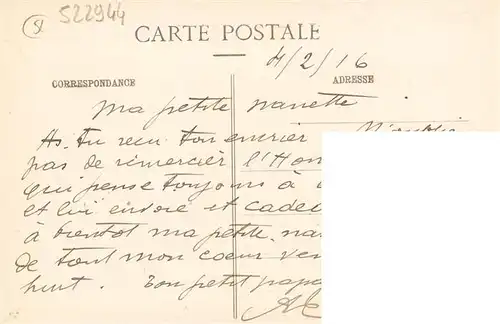 SL
522944
CARTE POSTALE
4/2/16
CORRESPONDANCE
ADRESSE
Ma petite nanette
As-tu reçu ton encrier N'oublie
pas de remercier l'Hon
qui pense toujours à
et lui envoie et cadeau
à bientôt ma petite na
de tout mon coeur
Ton petit papa